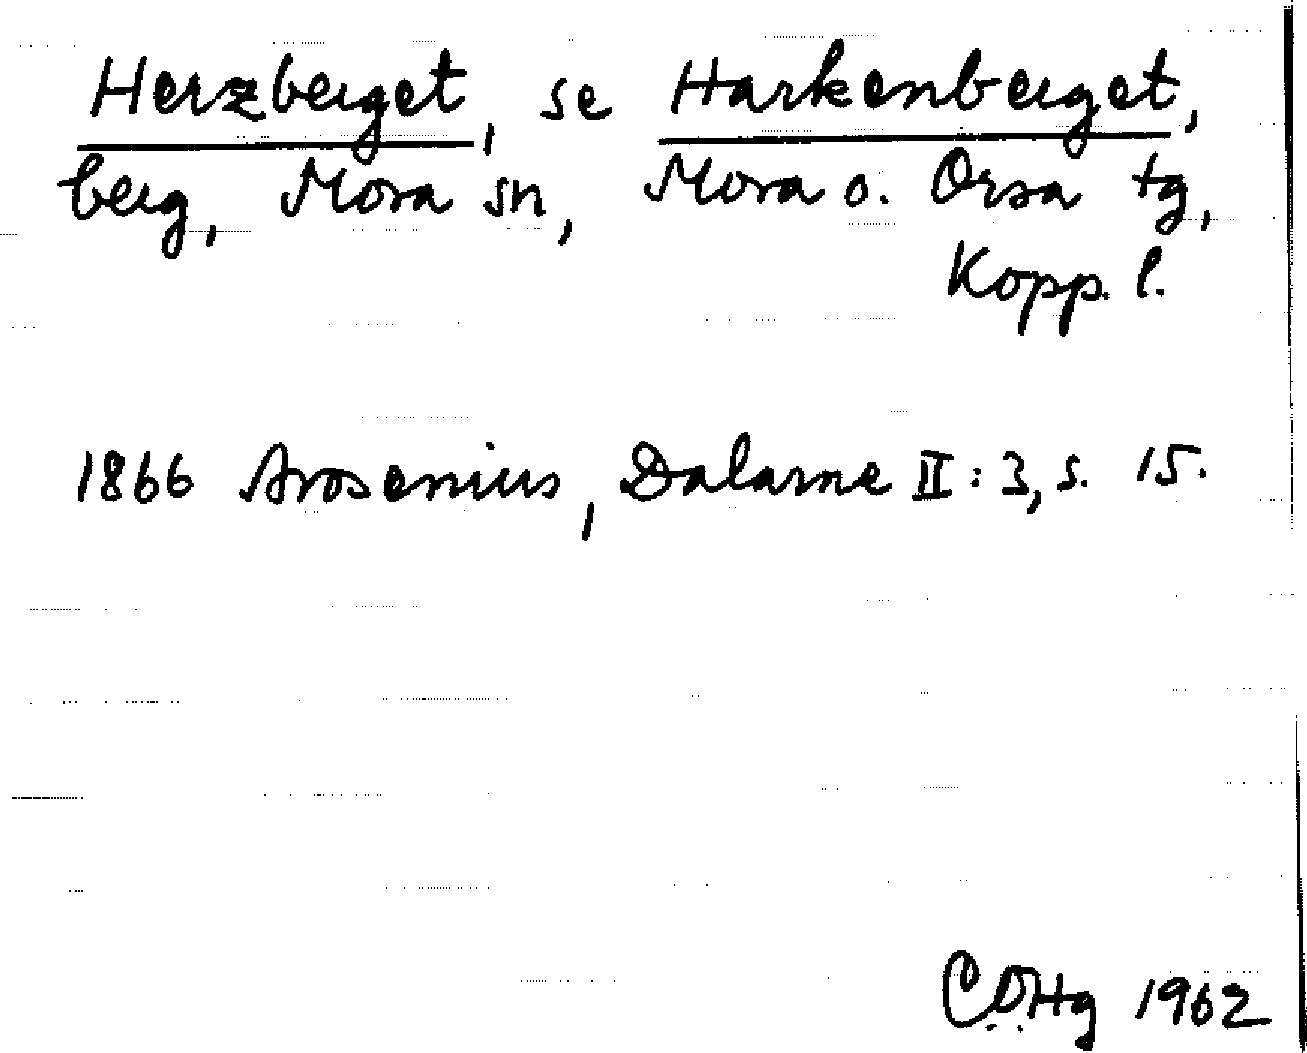 Herzberget, se Harkenberget,
berg, Mora sn, Mora o. Orsa tg,
Kopp. l.
1866 Arosenius, Dalarne II: 3, s. 15.
CDHg 1962